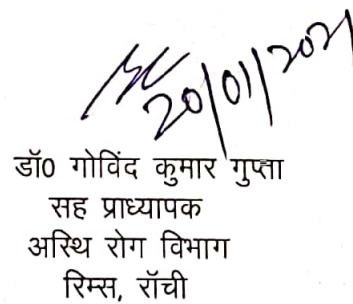 20/01/2021
डॉ0 गोविंद कुमार गुप्ता
सह प्राध्यापक
अस्थि रोग विभाग
रिम्स, राँची